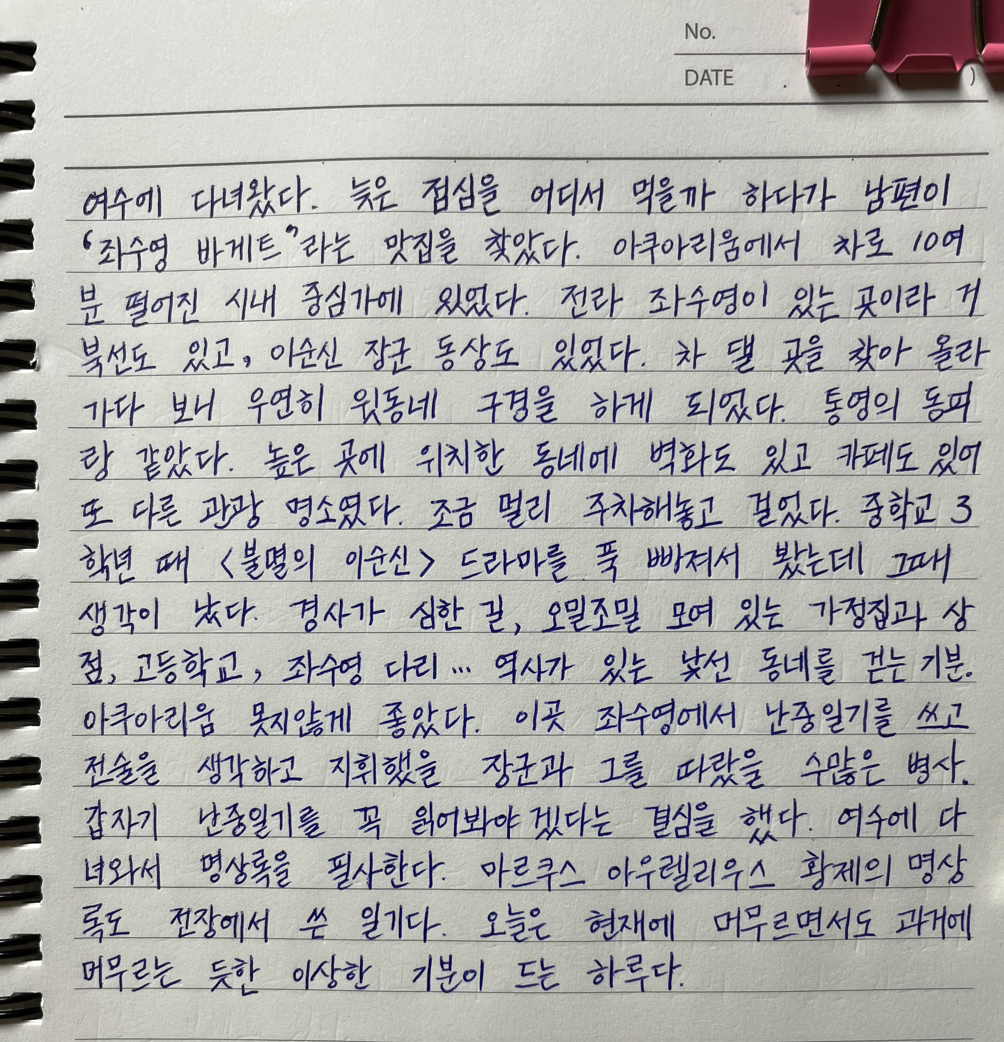 No.
DATE . ( )
여수에 다녀왔다. 늦은 점심을 어디서 먹을까 하다가 남편이
‘좌수영 바게트”라는 맛집을 찾았다. 아쿠아리움에서 차로 10여
분 떨어진 시내 중심가에 있었다. 전라 좌수영이 있는 곳이라 거
북선도 있고, 이순신 장군 동상도 있었다. 차 댈 곳을 찾아 올라
가다 보니 우연히 윗동네 구경을 하게 되었다. 통영의 동피
랑 같았다. 높은 곳에 위치한 동네에 벽화도 있고 카페도 있어
또 다른 관광 명소였다. 조금 멀리 주차해놓고 걸었다. 중학교 3
학년 때 <불멸의 이순신> 드라마를 푹 빠져서 봤는데 그때
생각이 났다. 경사가 심한 길, 오밀조밀 모여 있는 가정집과 상
점, 고등학교, 좌수영 다리… 역사가 있는 낯선 동네를 걷는 기분.
아쿠아리움 못지않게 좋았다. 이곳 좌수영에서 난중일기를 쓰고
전술을 생각하고 지휘했을 장군과 그를 따랐을 수많은 병사.
갑자기 난중일기를 꼭 읽어봐야겠다는 결심을 했다. 여수에 다
녀와서 명상록을 필사한다. 마르쿠스 아우렐리우스 황제의 명상
록도 전장에서 쓴 일기다. 오늘은 현재에 머무르면서도 과거에
머무르는 듯한 이상한 기분이 드는 하루다.